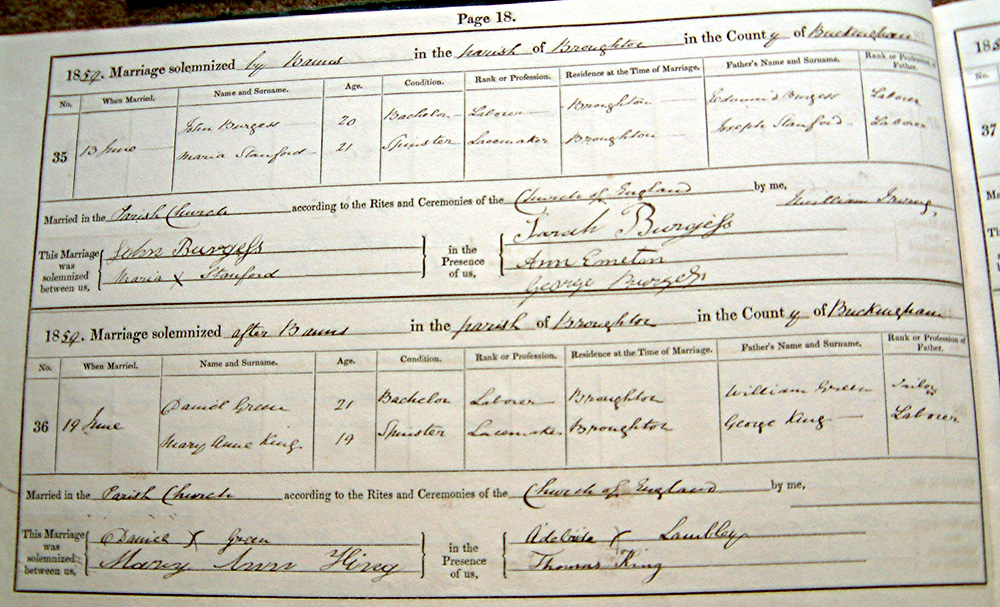 Page 18.
1859. Marriage solemnized by Banns in the parish of Broughton in the County of Buckingham
No. When Married. Name and Surname. Age. Condition. Rank or Profession. Residence at the Time of Marriage. Father's Name and Surname. Rank or Profession of Father.
John Burgess 20 Bachelor Laborer Broughton Edmund Burgess Laborer
35 13 June Maria Stanford 21 Spinster Lacemaker Broughton Joseph Stanford Laborer
Married in the Parish Church according to the Rites and Ceremonies of the Church of England by me,
William
This Marriage was solemnized between us,
John Burgess
Maria X Stanford
in the Presence of us,
Sarah Burgess
Ann Emerton
George Burgess
1859. Marriage solemnized after Banns in the parish of Broughton in the County of Buckingham
No. When Married. Name and Surname. Age. Condition. Rank or Profession. Residence at the Time of Marriage. Father's Name and Surname. Rank or Profession of Father.
Daniel Green 21 Bachelor Laborer Broughton William Green Tailor
36 19 June Mary Anne King 19 Spinster Lacemaker Broughton George King Laborer
Married in the Parish Church according to the Rites and Ceremonies of the Church of England by me,
This Marriage was solemnized between us,
Daniel X Green
Mary Ann King
in the Presence of us,
Adelaide X Lambley
Thomas King
185
No.
37